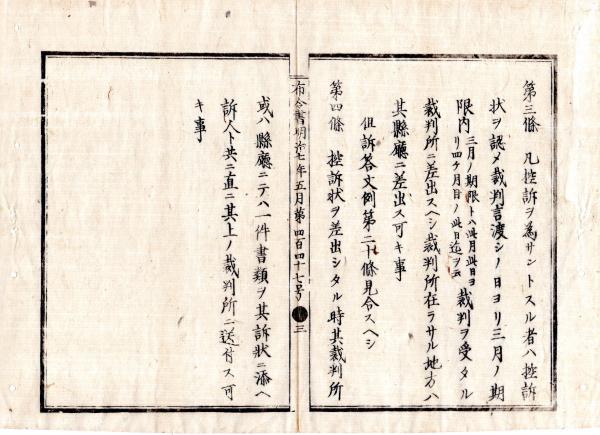 第三條 凡控訴ヲ為サントスル者ハ控訴
状ヲ認メ裁判言渡シノ日ヨリ三月ノ期
限内三月ノ期限トハ此月此日ヨリ四ケ月目ノ此日迄ヲ云裁判ヲ受タル
裁判所ニ差出スヘシ裁判所在ラサル地方ハ
其縣廳ニ差出ス可キ事
但訴答文例第二十條見合スヘシ
第四條 控訴状ヲ差出シタル時其裁判所
布令書明治七年五月第四百四十七号 三
或ハ縣廳ニテハ一件書類ヲ其訴狀ニ添ヘ
訴人ト共ニ直ニ其上ノ裁判所ニ送付ス可
キ事